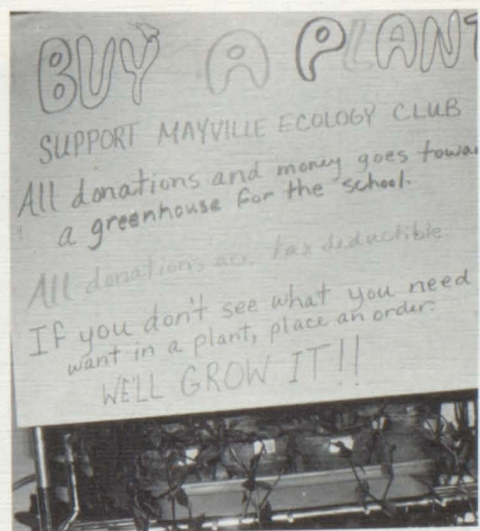 BUY A PLANT
SUPPORT MAYVILLE ECOLOGY CLUB
All donations and money goes towar
a greenhouse for the school.
All donations are tax deductible.
If you don't see what you need
want in a plant, place an order.
WE'LL GROW IT!!